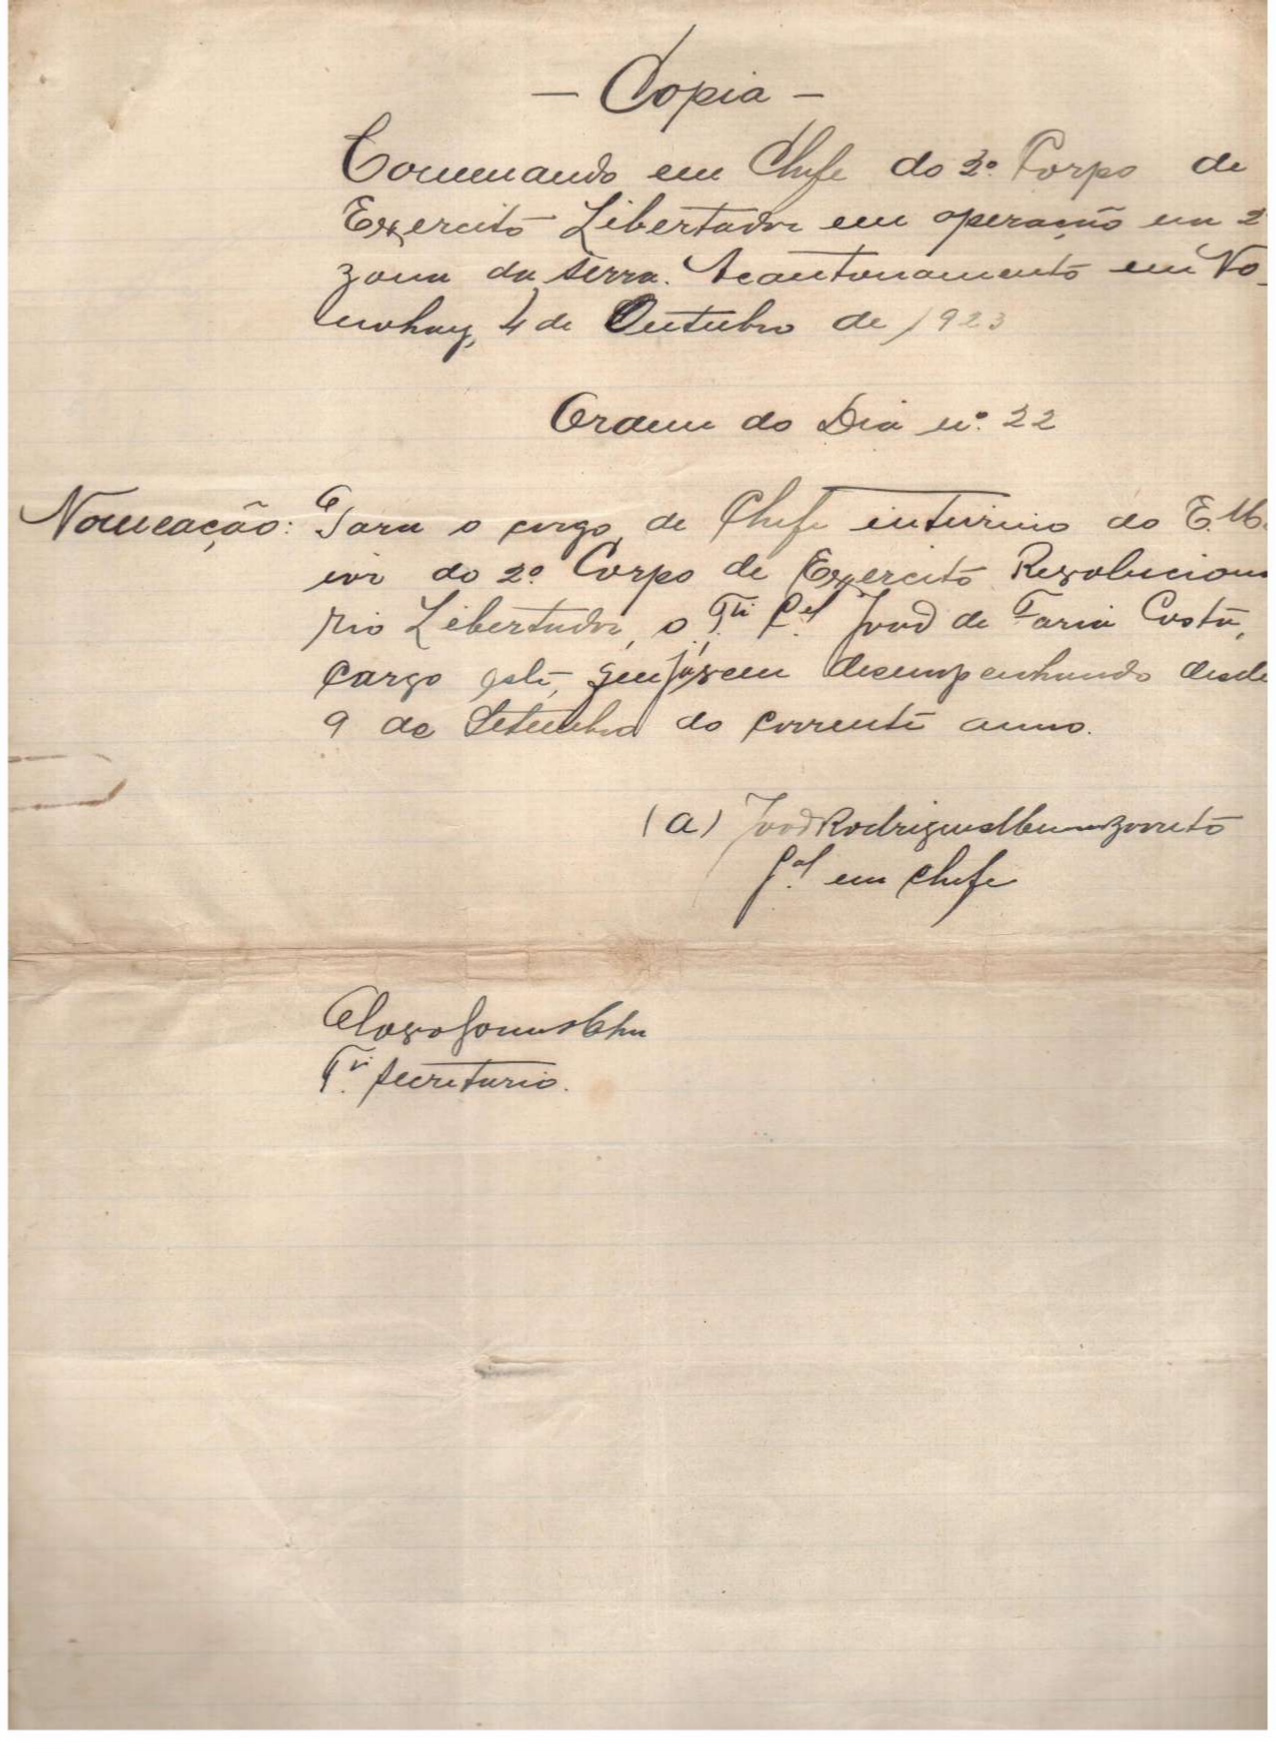 — Copia —
Commando em Chefe do 2º Corpo de
Exercito Libertador em operação na 2
zona da serra. Acantonamento em No-
nohay, 4 de Outubro de 1923
Ordem do Dia nº 22
Nomeação: Para o cargo de Chefe interino do E. M.
ior do 2º Corpo de Exercito Revoluciona
rio Libertador, o Tte Cel João de Faria Costa,
cargo este, que já vem desempenhando desde
9 de Setembro do corrente anno.
(a) João Rodrigues Menna Barreto
Gal em Chefe
Te Secretario.